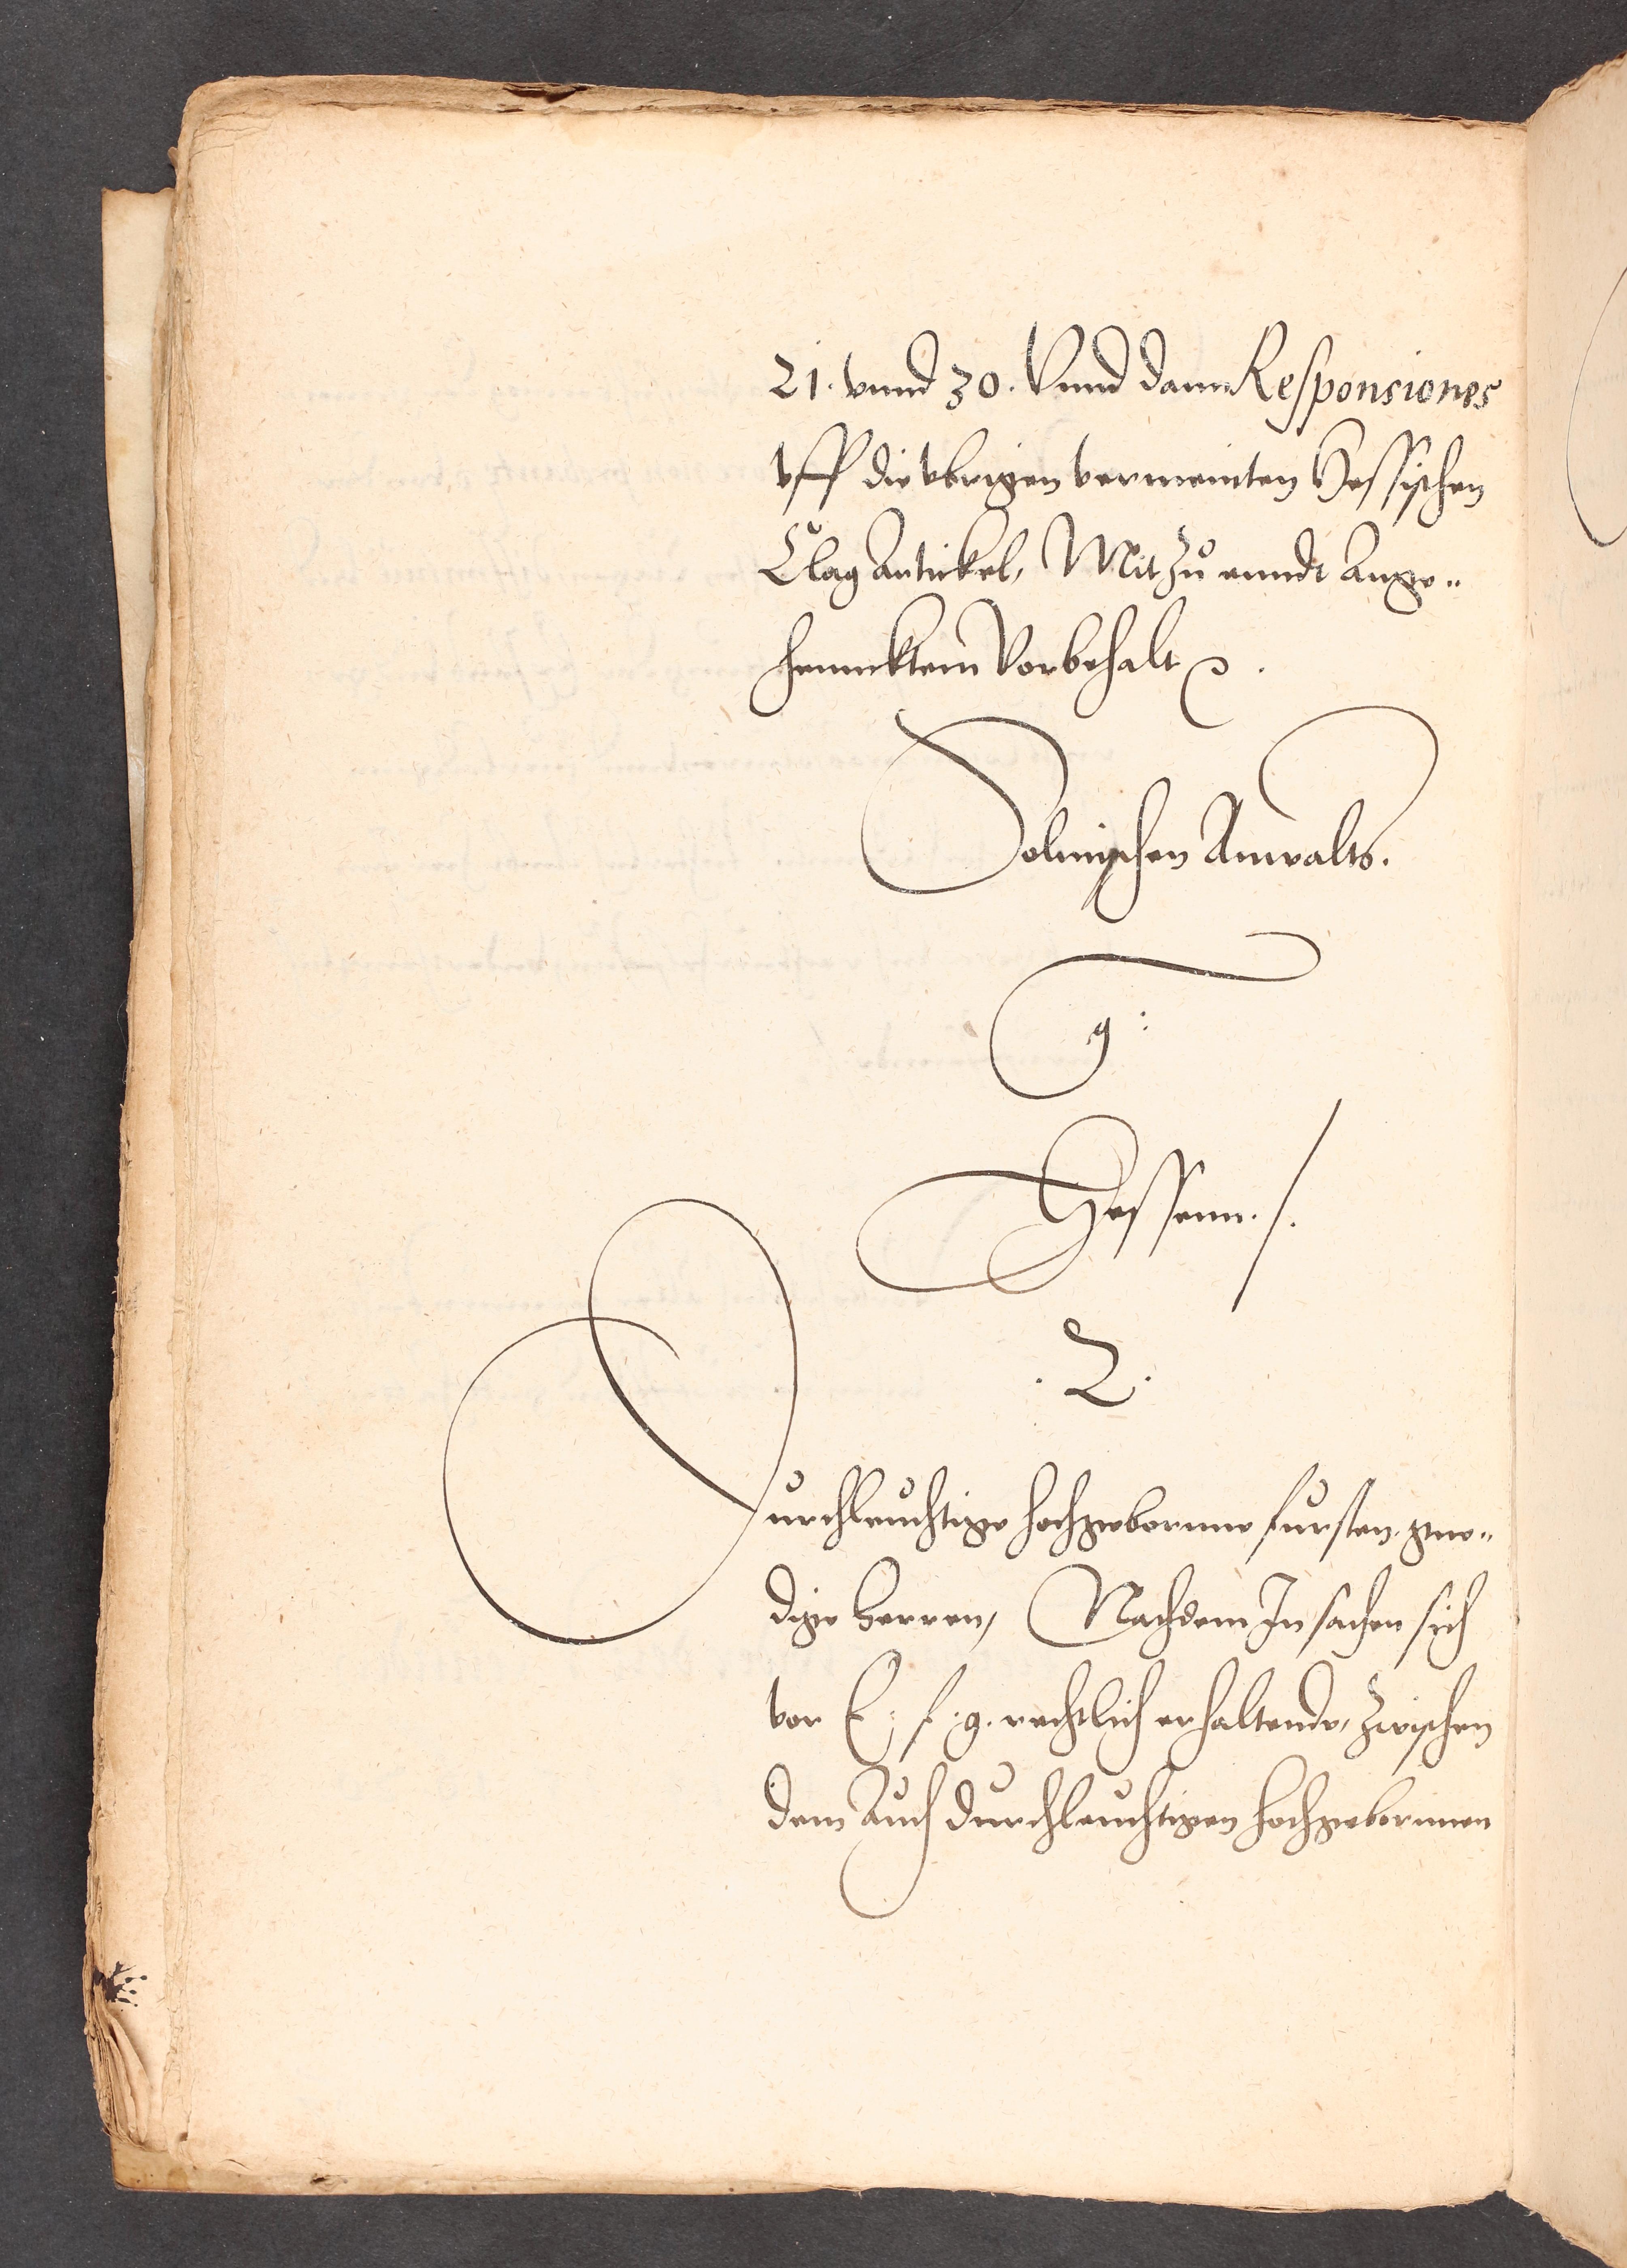 21. vnnd 30. Vnnd dann Responsiones
vff die vbrigen vermeinten Hessischen
Clag Artickel, Mit zu enndt ange„
hencktem Vorbehalt etc.
Solmischen Anwalts.
C
g:
Hessenn. /.
. 2.
Durchleuchtige hochgeborne fursten. gne„
dige herren, Nachdem In sachen sich
vor E. f. g. rechtlich erhaltende, zwischen
dem Auch durchleuchtigen hochgebornnen